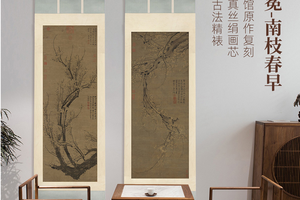 冕-南枝春早
馆原作复刻
真丝绢画芯
古法精裱